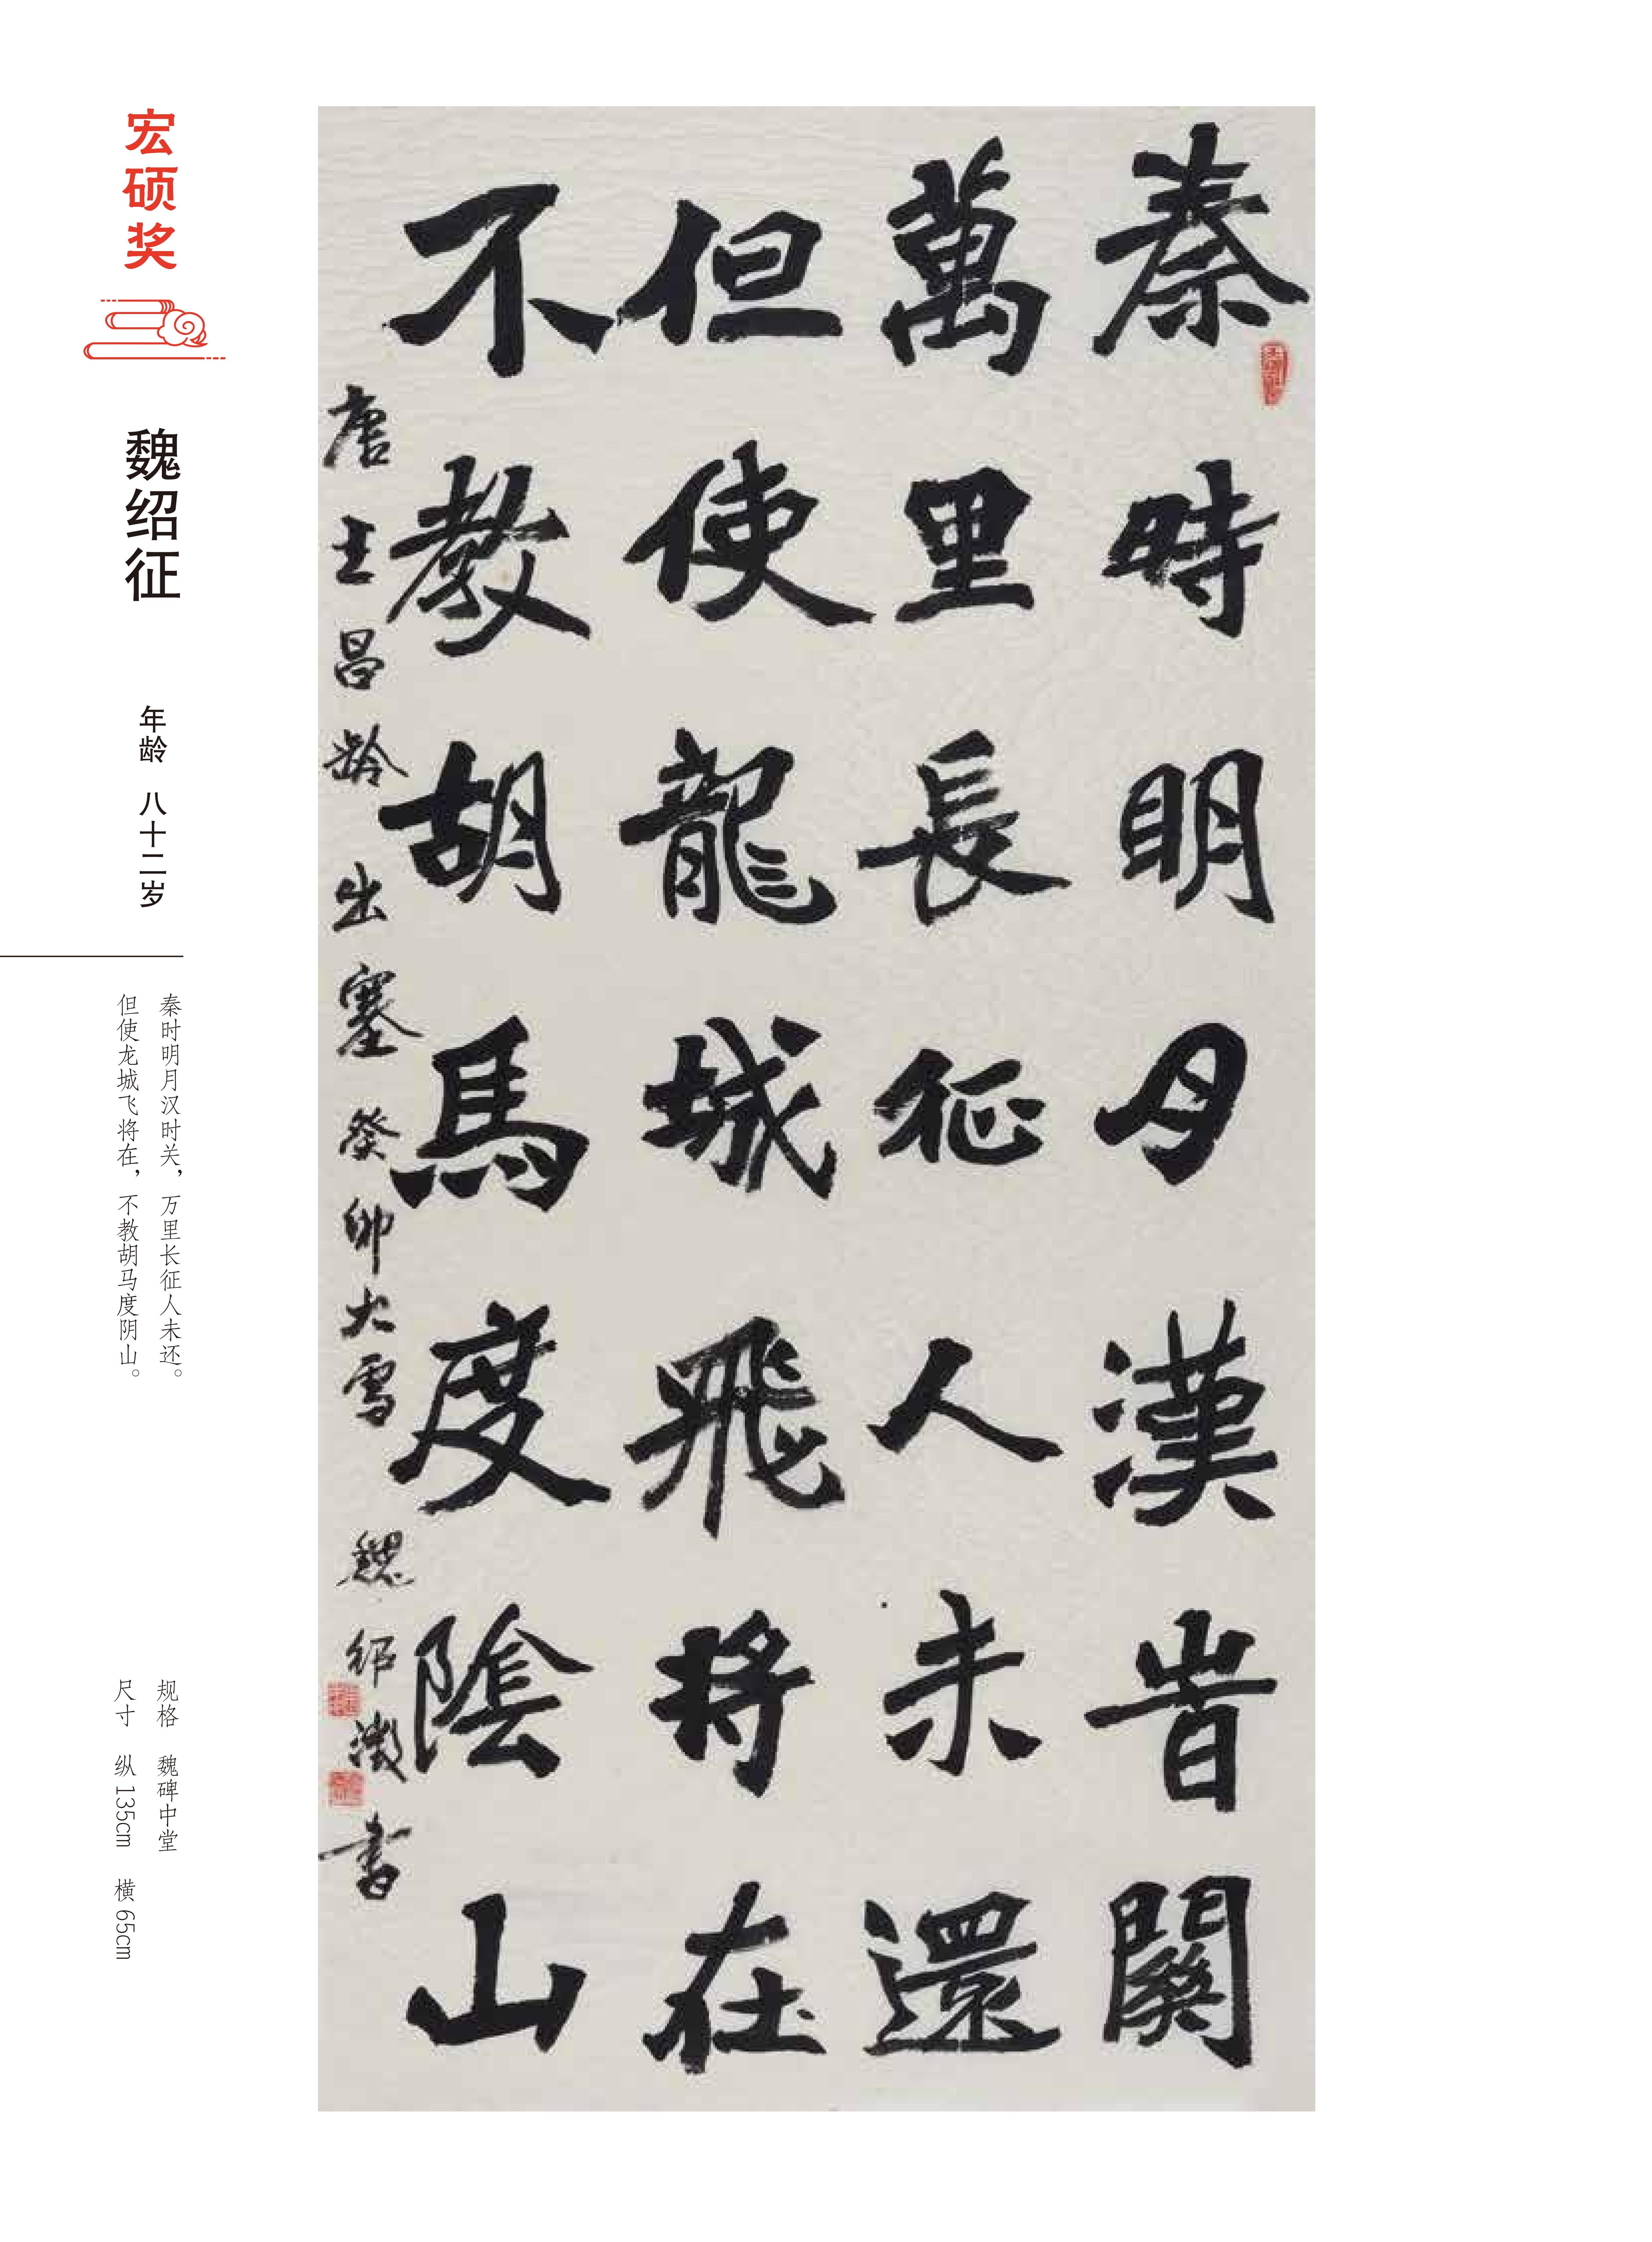 宏硕奖
魏绍征
年龄 八十二岁
秦时明月汉时关，万里长征人未还。
但使龙城飞将在，不教胡马度阴山。
规格 魏碑中堂
尺寸 纵135cm 横65cm
秦時明月漢旹關
萬里長征人未還
但使龍城飛将在
不教胡馬度陰山
唐王昌龄出塞癸卯大雪 魏绍徵書